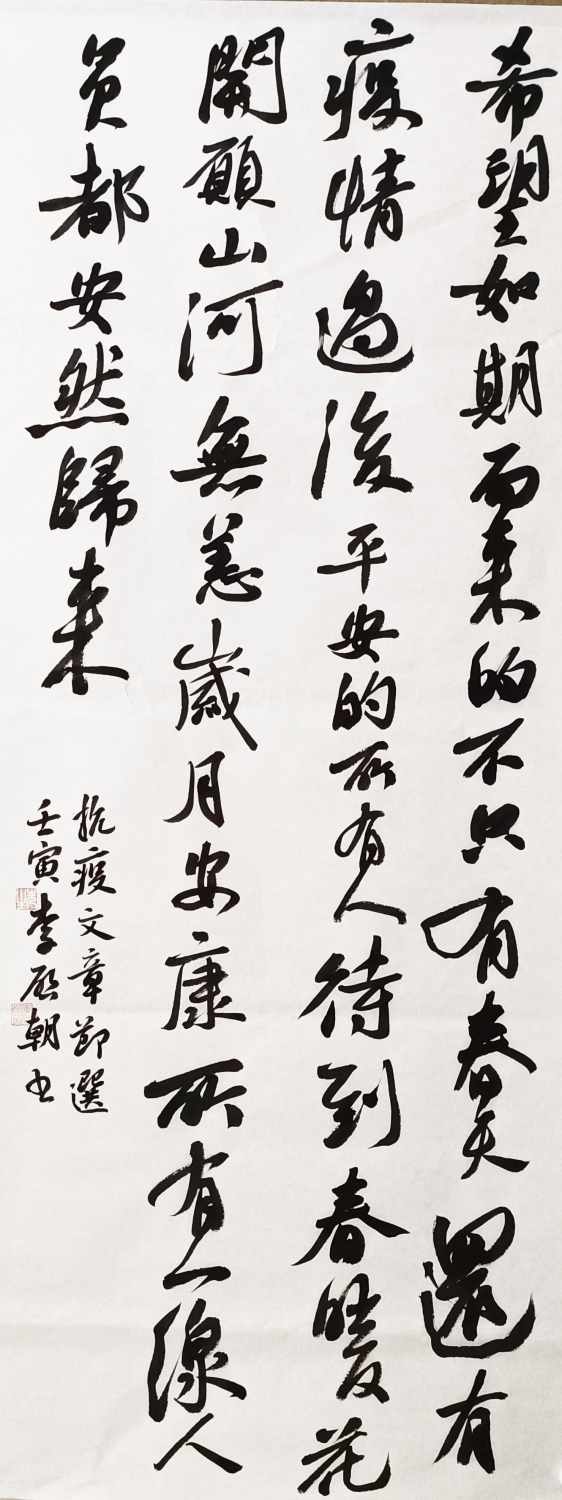 希望如期而来的不只有春天還有
疫情過後平安的所有人待到春暖花
開願山河無恙歲月安康所有一線人
員都安然歸来
抗疫文章節選
壬寅李啟朝书